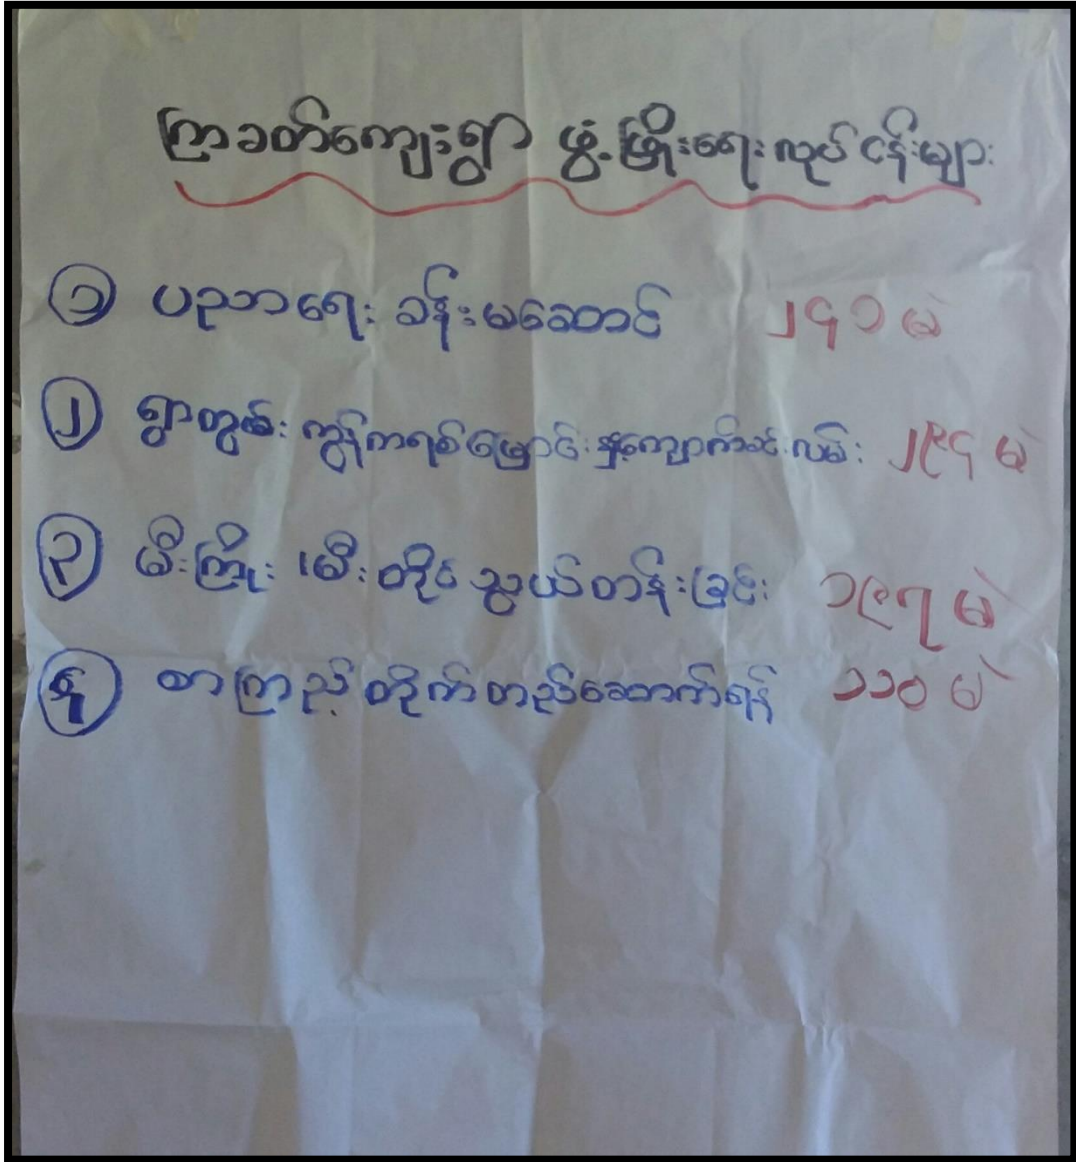 ကြာခတ်ကျေးရွာ ဖွံ့ဖြိုးရေးလုပ်ငန်းများ
၁ ပညာရေး ခန်းမဆောင် ၂၄၁ မဲ
၂ ရွာတွင်း ကွန်ကရစ်မြောင်းနှင့်ကျောက်ခင်းလမ်း ၂၉၄ မဲ
၃ မီးကြိုး ၊မီးတိုင် သွယ်တန်းခြင်း ၁၉၇ မဲ
၄ စာကြည့်တိုက်တည်ဆောက်ရန် ၁၁၀ မဲ